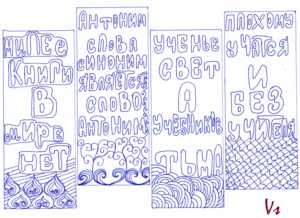 МИЛЕЕ
КНИГИ
В
МИРЕ
НЕТ
АНТОНИМ
СЛОВА
СИНОНИМ
ЯВЛЯЕТСЯ
СЛОВО
АНТОНИМ
УЧЕНЬЕ
СВЕТ
А
УЧЕБНИКОВ
ТЬМА
ПЛОХОМУ
УЧАТСЯ
И
БЕЗ
УЧИТЕЛЯ